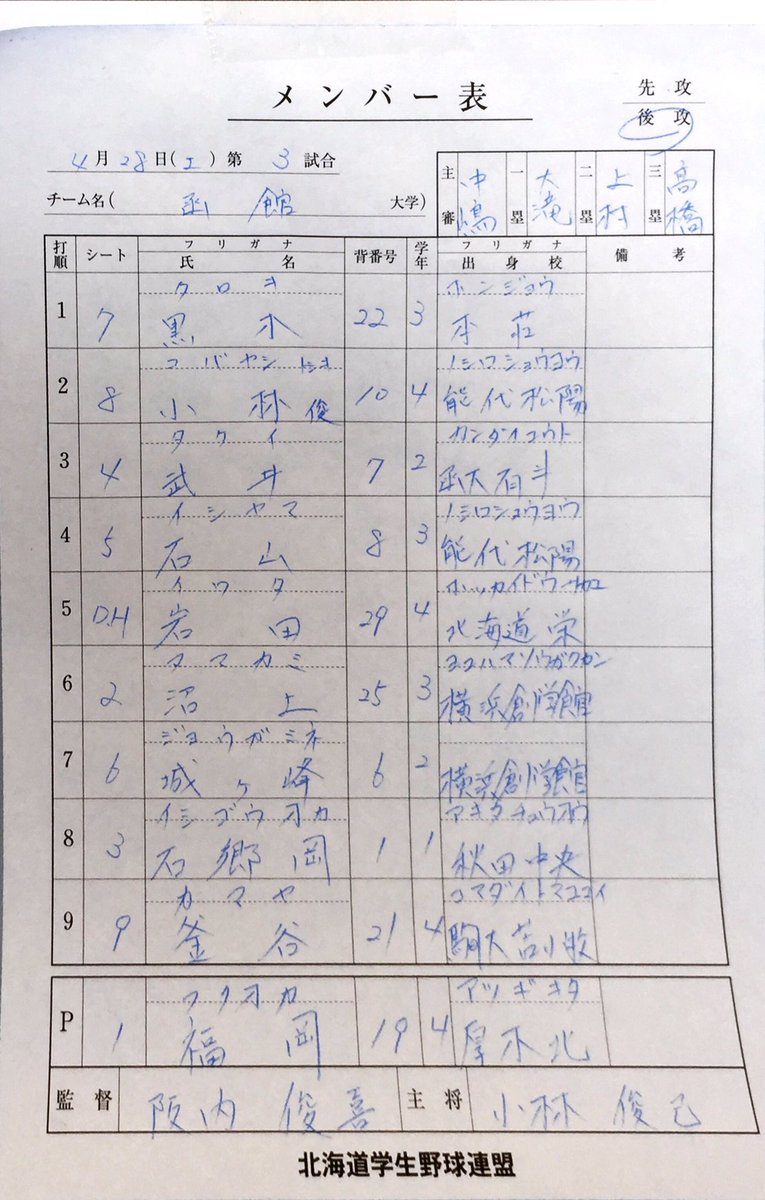 メンバー表
先攻
後攻
4月28日(土)第3試合
チーム名(函館大学)
主審 沖嶋 一塁 大滝 二塁 上村 三塁 高橋
打順 シート フリガナ 氏名 背番号 学年 フリガナ 出身校 備考
クロキ ホンジョウ
1 7 黒木 22 3 本荘
コバヤシトシキ ノシロショウヨウ
2 8 小林俊 10 4 能代松陽
タケイ カンダイユウト
3 4 武井 7 2 函大有斗
イシヤマ ノシロショウヨウ
4 5 石山 8 3 能代松陽
イワタ ホッカイドウサカエ
5 D.H 岩田 29 4 北海道栄
ヌマカミ ヨコハマソウガクカン
6 2 沼上 25 3 横浜創学館
ジョウガミネ
7 6 城ヶ峰 6 2 横浜創学館
イシゴウオカ アキタチュウオウ
8 3 石郷岡 1 1 秋田中央
カマヤ コマダイトマコマイ
9 9 釜谷 21 4 駒大苫小牧
フクオカ アツギキタ
P 1 福岡 19 4 厚木北
監督 阪内俊喜 主将 小林俊己
北海道学生野球連盟